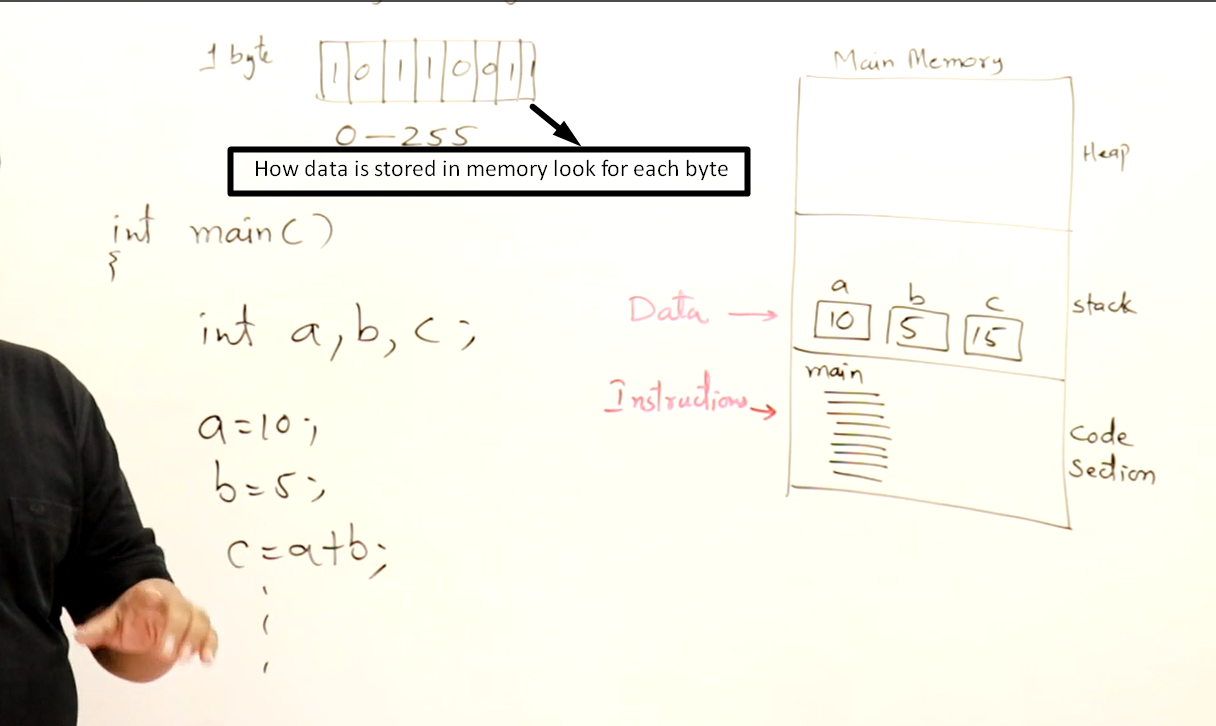 1 byte
1 0 1 1 0 0 1 1
0-255
How data is stored in memory look for each byte
int main()
{
int a, b, c;
a=10;
b=5;
c=a+b;
Main Memory
Heap
a b c
10 5 15
stack
Data →
Instructions →
main
Code
Section